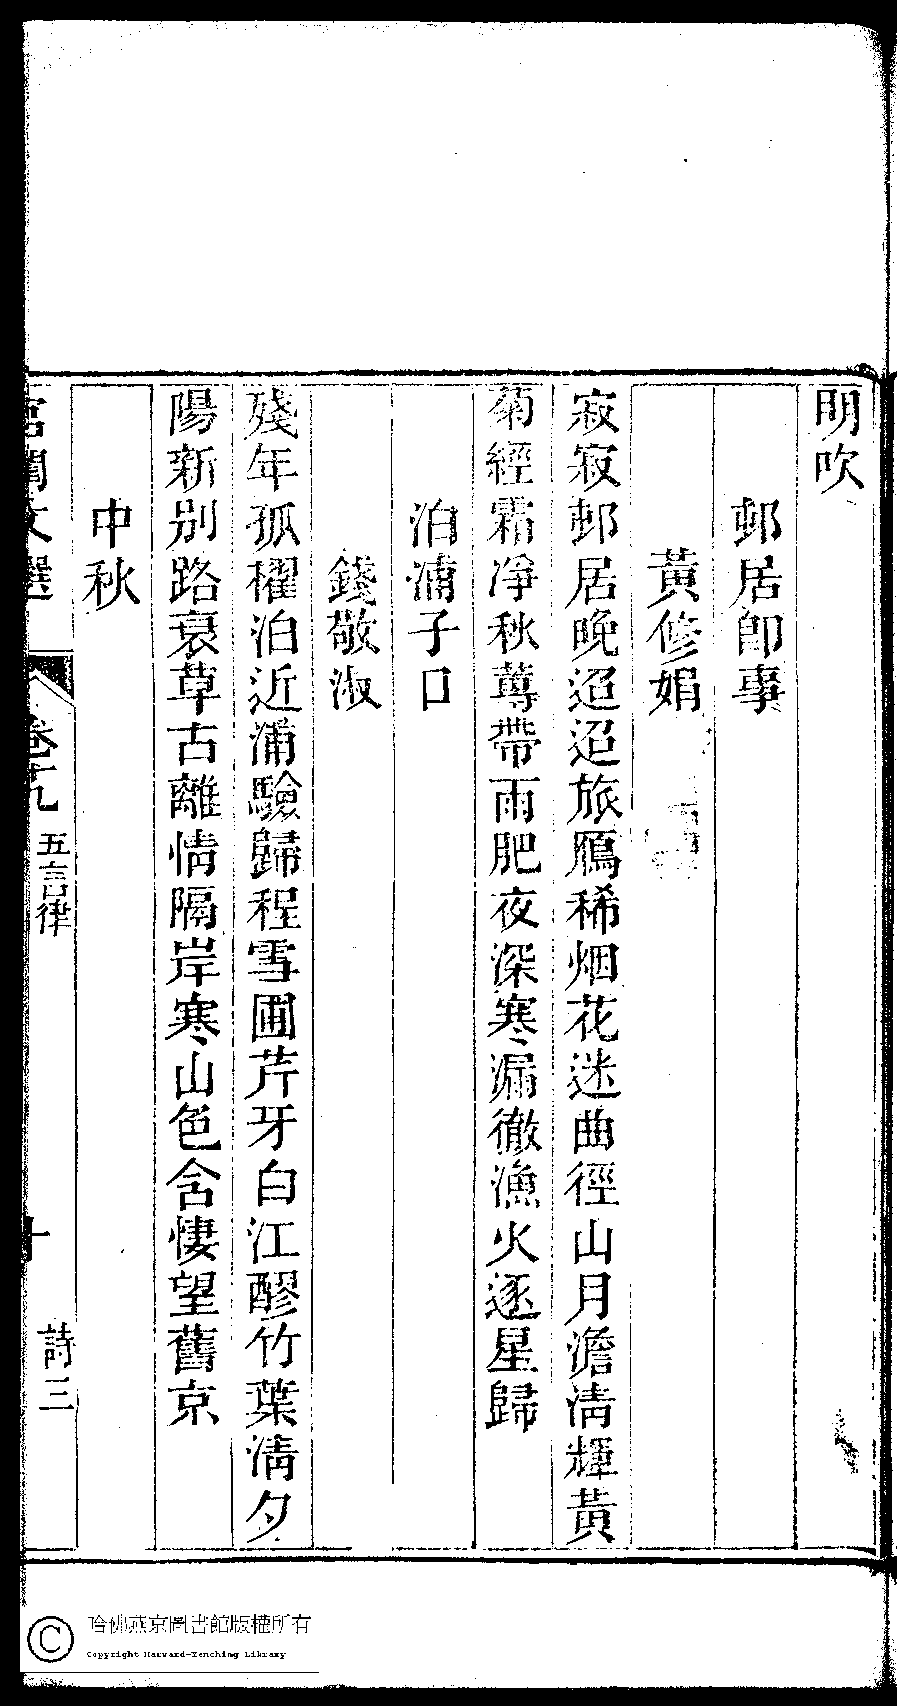 明吹
邨居卽事
黃修娟
寂寂邨居晚迢迢旅鴈稀烟花迷曲徑山月澹淸輝黃
菊經霜淨秋蓴帶雨肥夜深寒漏徹漁火逐星歸
泊浦子口
錢敬淑
殘年孤櫂泊近浦驗歸程雪圃芹牙白江醪竹葉淸夕
陽新別路衰草古離情隔岸寒山色含悽望舊京
中秋
宮閨文選
卷十九
五言律
十
詩三
哈佛燕京圖書館版權所有
Copyright Harvard-Yenching Library